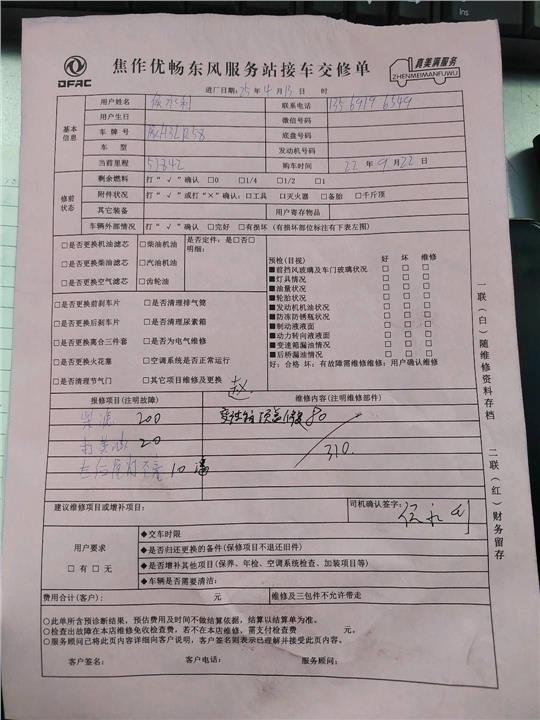 DFAC
焦作优畅东风服务站接车交修单
真美满服务
ZHENMEIMANFUWU
进厂日期：25 年 4 月 13 日 时
基本信息
用户姓名 联系电话 135 6919 6549
用户生日 微信号码
车牌号 底盘号码
车型 发动机号码
当前里程 51842 购车时间 22 年 9 月 22 日
修前状态
剩余燃料 打“√”确认 □0 □1/4 □1/2 □1
附件状况 打“√”或打“×”确认：□工具 □灭火器 □备胎 □千斤顶
其它装备 用户寄存物品
车辆外部情况 打“√”确认 □完好 □有损坏（有损坏部位标注有下表左图）
□是否更换机油滤芯 □柴油机油 是否定件：是□否□
明细：
□是否更换柴油滤芯 □汽油机油
□是否更换空气滤芯 □齿轮油
□是否更换前刹车片 □是否清理排气筒
□是否更换后刹车片 □是否清理尿素箱
□是否更换离合三件套 □是否为电气维修
□是否更换火花塞 □空调系统是否正常运行
□是否清理节气门 □其它项目维修及更换
预检（目视） 好 坏 维修
■前挡风玻璃及车门玻璃状况 □ □ □
■灯具情况 □ □ □
■油量状况 □ □ □
■轮胎状况 □ □ □
■发动机机油状况 □ □ □
■防冻防锈瓶状况 □ □ □
■制动液液面 □ □ □
■动力转向液液面 □ □ □
■变速箱漏油情况 □ □ □
■后桥漏油情况 □ □ □
好：合格 坏：有故障需维修维修：用户确认维修
赵
报修项目（注明故障） 维修内容（注明维修部件）
柴滤 200 变速箱顶盖 80
打黄油 20 310.
10
建议维修项目或增补项目： 司机确认签字：
用户要求
□有 □无
◆交车时限
◆是否归还更换的备件（保修项目不退还旧件）
◆是否增补其他项目（保养、年检、空调系统检查、加装项目等）
◆车辆是否需要清洁：
费用合计（客户）： 元 维修及三包件不允许带走
○此单所含预诊断结果，预估费用及时间不做结算依据，结算以结算单为准。
○检查出故障在本店维修免收检查费，若不在本店维修、需支付检查费 元。
○服务顾问已将此页内容详细向客户说明，客户签名则表示已理解并接受此页内容。
客户签名： 客户电话： 服务顾问：
一联（白）随维修资料存档
二联（红）财务留存